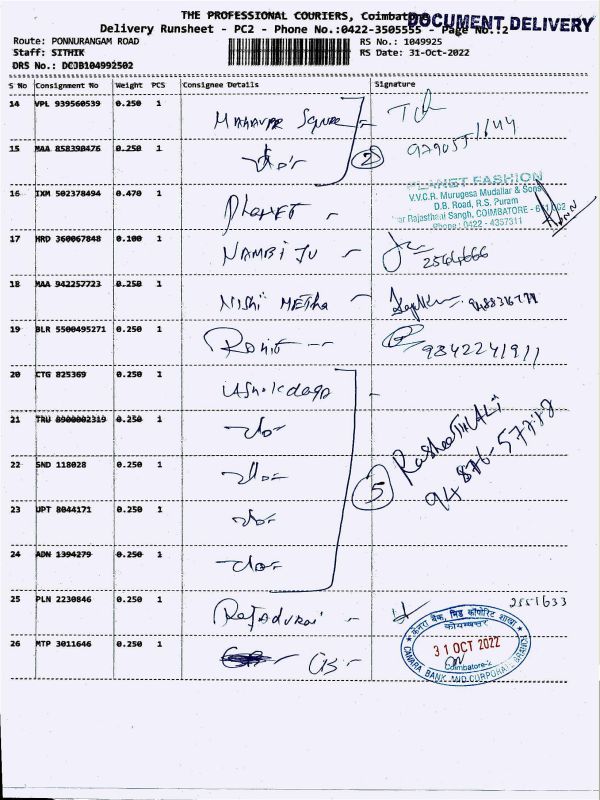 THE PROFESSIONAL COURIERS, Coimbatore
DOCUMENT DELIVERY
Delivery Runsheet - PC2 - Phone No.:0422-3505555 - Page No.:2
Route: PONNURANGAM ROAD
RS No.: 1049925
Staff: SITHIK
RS Date: 31-Oct-2022
DRS No.: DCJB104992502
S No Consignment No Weight PCS Consignee Details Signature
14 VPL 939560539 0.250 1
Square
97905
15 MAA 858390476 0.250 1 do 2
PLANET FASHION
V.V.C.R. Murugesa Mudaliar & Sons
D.B. Road, R.S. Puram
Rajasthani Sangh, COIMBATORE - 641 002
Phone : 0422 - 4357311
16 IXM 502378494 0.470 1 Planet
17 HRD 360067848 0.100 1 NAMBI JU
2544666
18 MAA 942257723 0.250 1 Nishi Metha
19 BLR 5500495271 0.250 1 Rohit
9842241911
20 CTG 825369 0.250 1 Ashok daga
21 TRU 8900002319 0.250 1 do
22 SND 118028 0.250 1 do
5
23 UPT 8044171 0.250 1 do
24 ADN 1394279 0.250 1 do
25 PLN 2230846 0.250 1 Rajadurai
2551633
26 MTP 3011646 0.250 1 CB
केनरा बैंक, मिड कॉर्पोरेट शाखा
कोयम्बत्तूर
31 OCT 2022
Coimbatore-2
CANARA BANK MID CORPORATE BRANCH